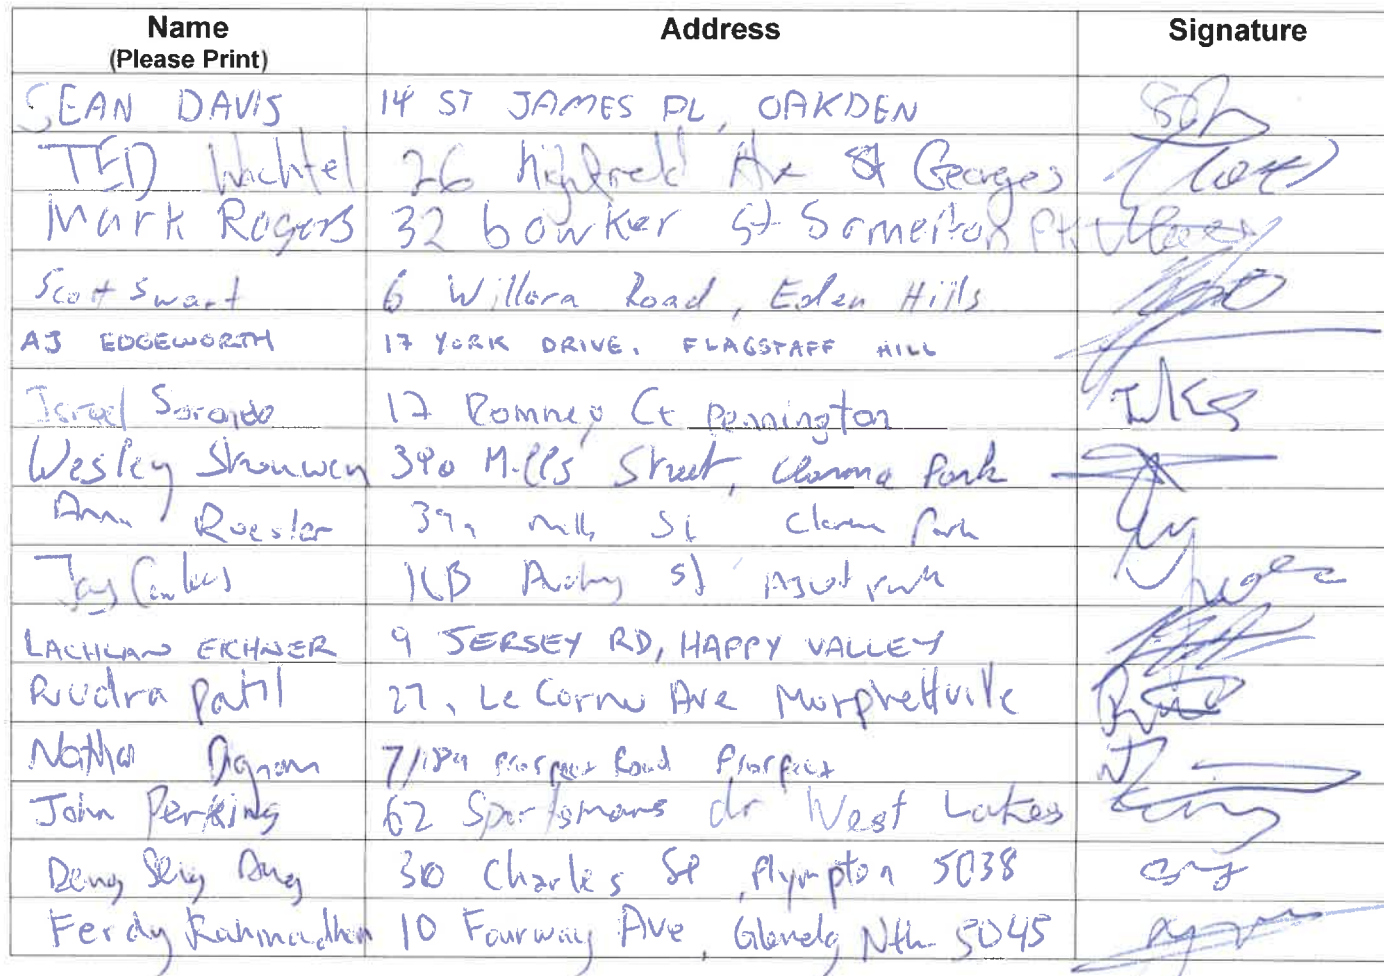 Name Address Signature
(Please Print)
SEAN DAVIS 14 ST JAMES PL, OAKDEN
TED Wachtel 26 Highfield Ave St Georges
Mark Rogers 32 bowker St Somerton Pk
Scott Swart 6 Willora Road, Eden Hills
AJ EDGEWORTH 17 YORK DRIVE, FLAGSTAFF HILL
Israel 17 Romney Ct Pennington
Wesley 39a Mills Street, Park
Roesler 39a Mills St Park
Jay St
LACHLAN EICHNER 9 JERSEY RD, HAPPY VALLEY
Rudra Patil 27, Le Cornu Ave Morphettville
Nathan Dignam 7/189 Prospect Road Prospect
John Perkins 62 Sportsmans dr West Lakes
Deng 30 Charles St, Plympton 5038
Ferdy 10 Fourway Ave, Glenelg Nth 5045